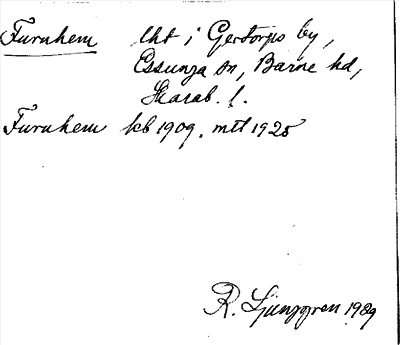 Furuhem lht i Gertorps by,
Essunga sn, Barne hd,
Skarab. l.
Furuhem kb 1909, mtl 1925
R. Ljunggren 1989